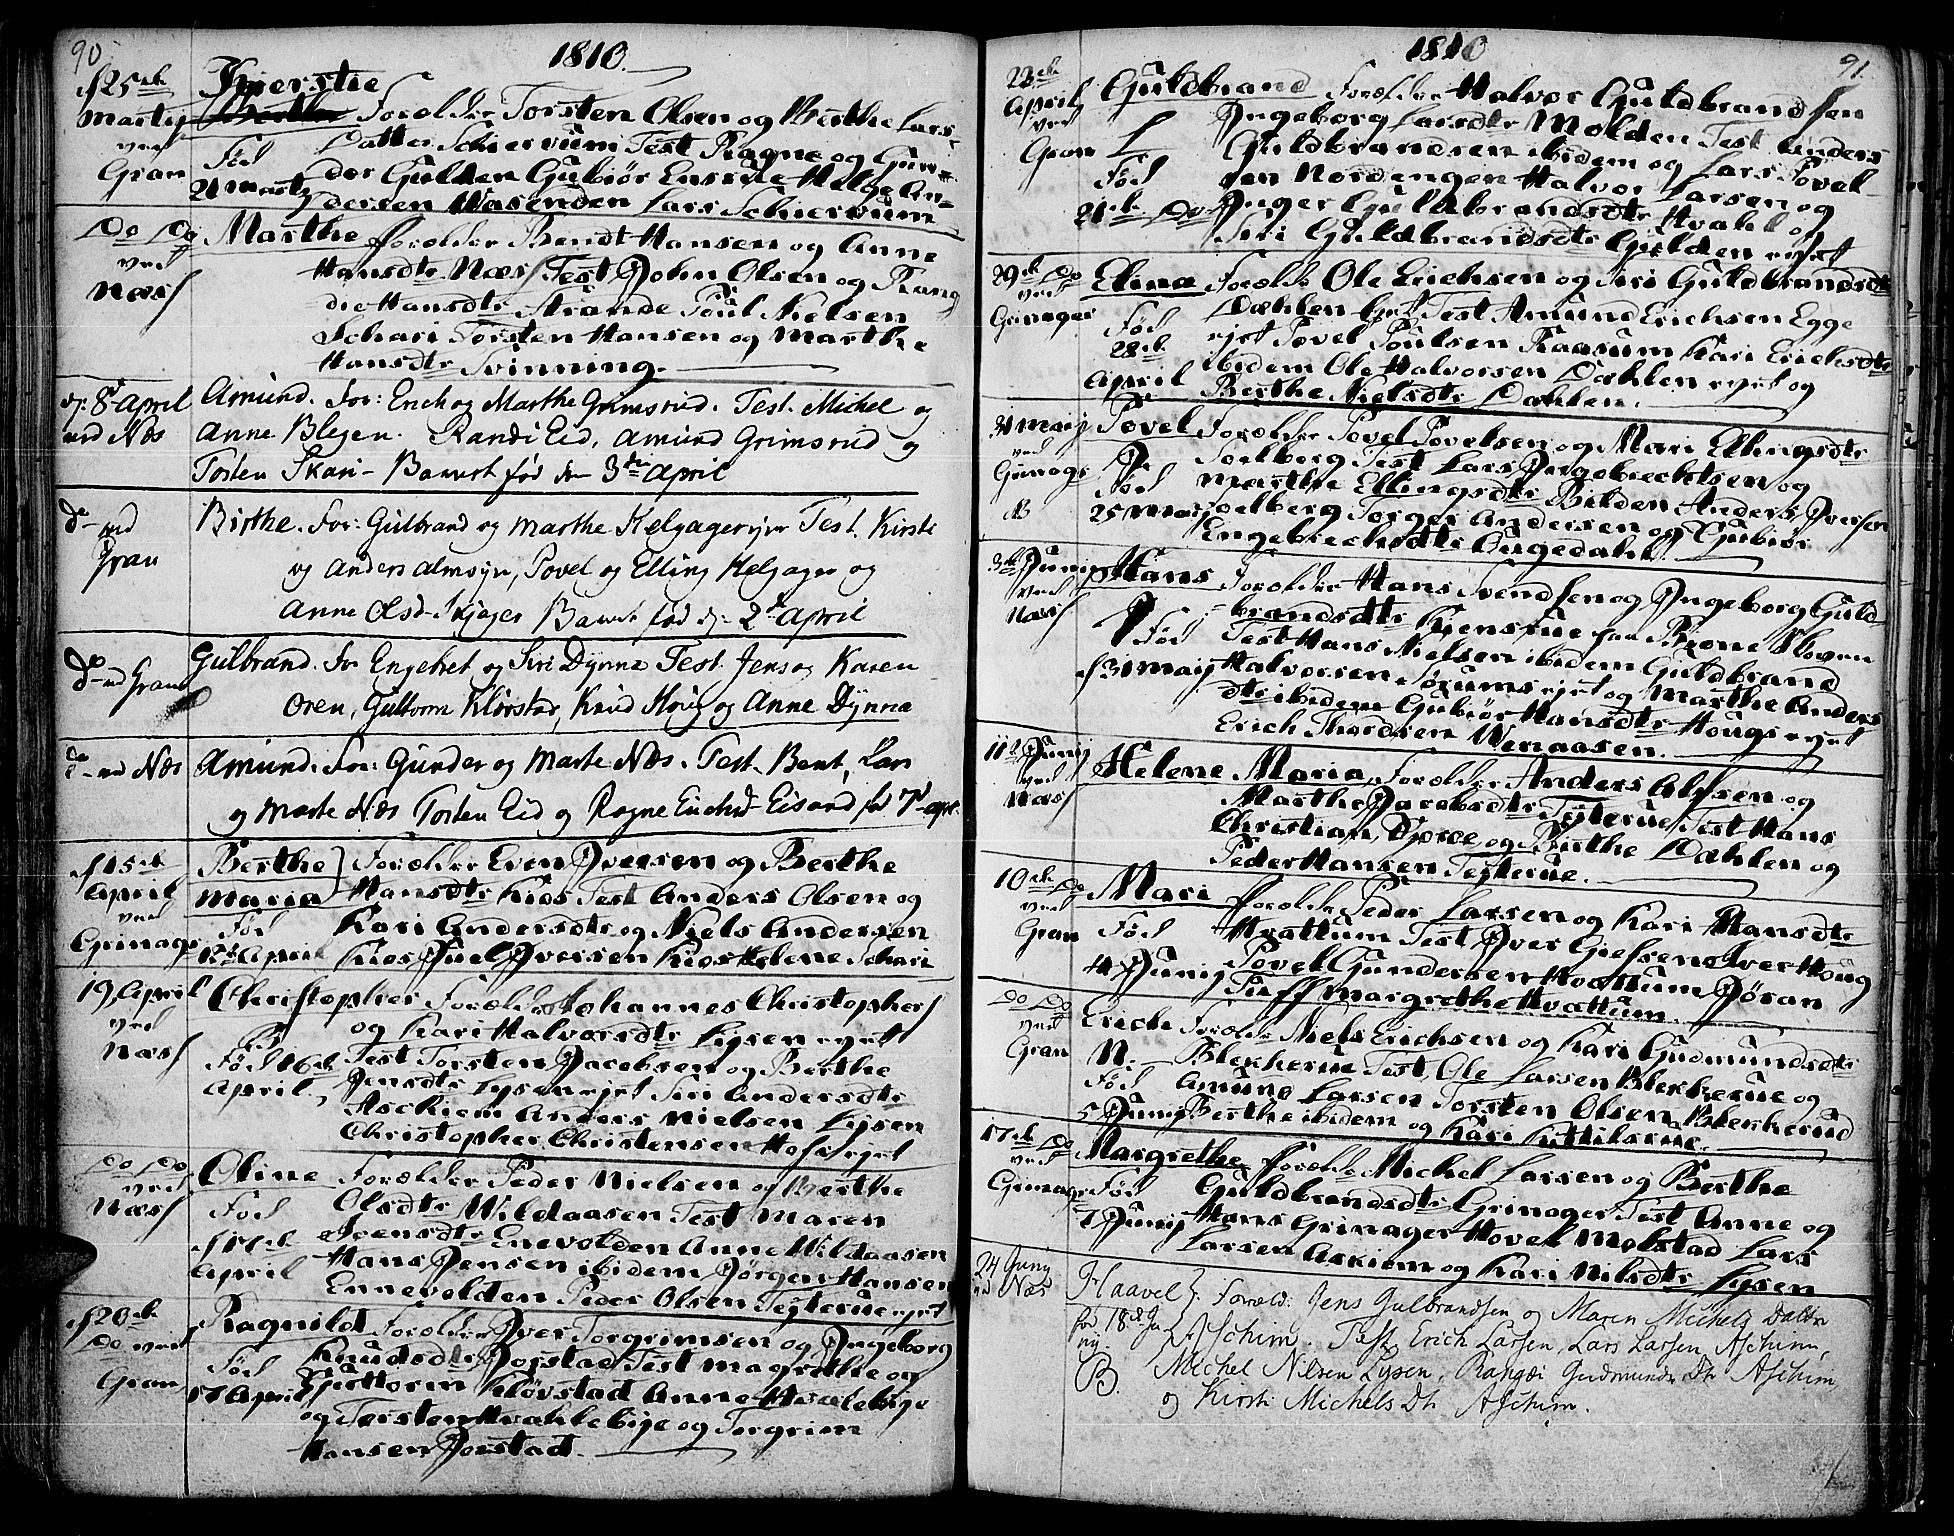 90
1810
d 25de Martij ved Gran
Kierstie
Berthe Forældre Torsten Olsen og Berthe Lars
Datter Schierrum Test Ragne og Gun
Fød 21 Martij
der Gulden Gubiør Ensrue Helge An=
dersen Wasenden Lars Schierrum
Do Do ved Næs
Marthe Forældre Bendt Hansen og Anne
Hansdtr Næs Test John Olsen og Rang
die Hansdtr Strande Poul Nielsen
Schari Torsten Hansen og Marthe
Hansdtr Svinning
d: 8de April ved Næs
Amund. For: Erich og Marthe Grimsrud. Test. Michel og
Anne Blegen. Randi Eid, Amund Grimsrud og
Torsten Skari - Barnet fød den 3die April
do ved Gran
Birthe. For: Gulbrand og Marthe Helgager Test. Kirste
og Anders Almseje, Povel og Elling Helgager og
Anne Olsd. Skjager Barnet fød d: 2de April
do ved Gran
Gulbrand. For Engebret og Siri Dynna Test. Jens og Karen
Oren, Guttorm Kløvstad, Knud Houg og Anne Dynna
do ved Næs
Amund. For: Gunder og Marte Næs. Test. Bent, Lars
og Marte Næs Torsten Eid og Ragne Erichsd Eisand fød 7de apr.
d 15de April ved Grinager
Berthe Maria Forældre Even Iversen og Berthe
Hansdtr Kios Test Anders Olsen og
Fød 12te April
Kari Andersdtr og Niels Andersen
Kios Juel Iversen Kios Helene Schari
19 April ved Næs
Christopher Forældre Johannes Christophers
og Kari Halvorsdtr Lysen eyet
Fød 16de April
Test Torsten Jacobsen og Berthe
Jensdtr Lysen ejet Siri Andersdtr
Aschiem Anders Nielsen Lysen
Christopher Christensen Hofs ejet
Do Do ved Næs
Oline Forældre Peder Nielsen og Berthe
Fød d 17de April
Olsdtr Wildaasen Test Maren
Svensdtr Enevolden Anne Wildaasen
Hans Jensen ibidem Jørgen Hansen
Ennevolden Peder Olsen Tejterue ejet
d 20de Do ved Gran
Ragnild Forældre Iver Torgrimsen og Ingeborg
Fød 17 April
Knudsdtr Jorstad Test Magrethe og
Guttorm Kløvstad Anne Hvalebye
og Torsten Hvahlebige og Torgrim
Hansen Jorstad
1810
91
22de April ved Gran
Guldbrand Forældre Halvor Guldbrandsen
Ingeborg Larsdtr Molden Test Anders
Fød 21de Do
Guldbrandsen ibidem og Lars Povel
sen Nordengen Halvor Larsen og
Inger Guldbrandsdtr Hvahl og
Siri Guldbrandsdtr Gulden ejet
29de Do ved Grinager
Elina Forældre Ole Erichsen og Siri Guldbrandsdtr
Fød 22de April
Dæhlen Ejet Test Amund Erichsen Egge
ejet Povel Poulsen Raasum Kari Erichsdtr
ibidem Ole Halvorsen Dæhlen ejet og
Berthe Nielsdtr Dahlen
31 Maij ved Grinager
Povel Forældre Povel Povelsen og Mari Ellingsdtr
Fød 25 Maij
Soelberg Test Lars Ingebrechtsen og
Marthe Ellingsdtr Bilden Anders Iversen
Soelberg Torger Andersen og Gubiør
Engebrechtsdtr Bugedahl
3de Junij ved Næs
Hans Forældre Hans Svendsen og Ingeborg Guld=
brandsdtr Kjensrue
Fød d 31 Maij
Test Hans Nielsen ibidem Guldbrand
Halvorsen Sørums ejet og Marthe Anders
dtr ibidem Gubiør Hansdtr Hougs eyet
Erich Thordsen Wenaasen
11te Junij ved Næs
Helene Maria Forældre Anders Olsen og
Marthe Jacobsdtr Tejterue Test Hans
Christian og Birthe Dæhlen og
Peder Hansen Tejterue
10de Do ved Gran
Mari Forældre Peder Larsen og Kari Hansdtr
Fød 4 Junij
Hvattum Test Iver Giefsen Iver Houg
Povel Gundersen Hvattum Jøran
Tuff Margrethe Hvattum
Do Do ved Gran
Erich Forældre Niels Erichsen og Kari Gudmundsdtr
N. Fød 5 Junij
Blekkerue Test Ole Larsen Blekkerue og
Amund Larsen Torsten Olsen Blekkerud
Berthe ibidem og Kari Kittilsrue
17de Do ved Grinager
Margrethe Forældre Michel Larsen og Berthe
Fød 7 Junij
Guldbrandsdtr Grinager Test Anne og
Hans Grinager Hovel Molstad Lars
Larsen Askiem og Kari Nilsdtr Lysen
24 Juny ved Næs
Haavel Foræld: Jens Gulbrandsen og Maren Michels Dattr
fød 18de Juny.
Aschim. Test. Erich Larsen, Lars Larsen Aschim,
B.
Michel Nilsen Lysen, Rangdi Gudmunds Dtr Aschim,
og Kirsti Michels Dtr Aschim.